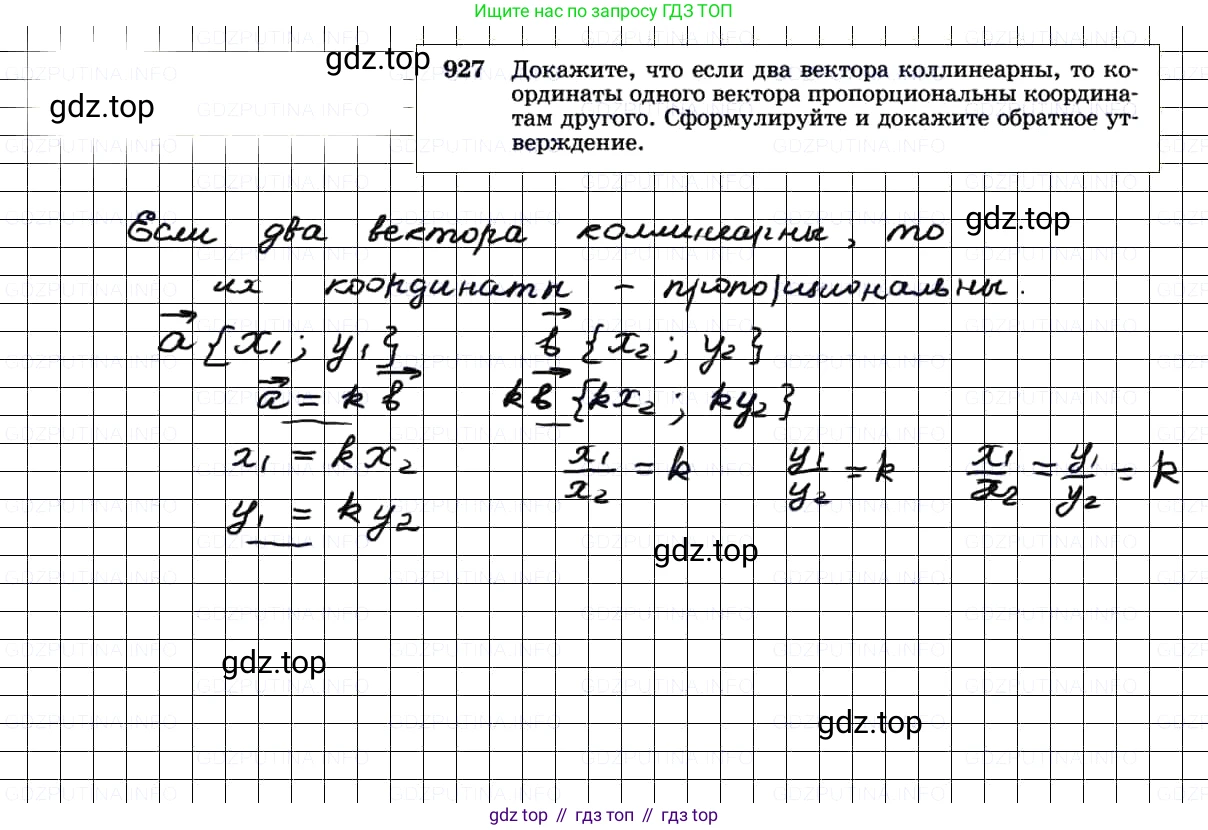 Ищите нас по запросу ГДЗ ТОП
gdz.top
gdz.top
927 Докажите, что если два вектора коллинеарны, то ко-
ординаты одного вектора пропорциональны координа-
там другого. Сформулируйте и докажите обратное ут-
верждение.
Если два вектора коллинеарны, то
gdz.top
их координаты – пропорциональны.
a⃗ {x₁; y₁} в⃗ {x₂; y₂}
a⃗ = k в⃗ k в⃗ {kx₂; ky₂}
x₁ = k x₂ x₁/x₂ = k y₁/y₂ = k x₁/x₂ = y₁/y₂ = k
y₁ = k y₂
gdz.top
gdz.top
gdz.top
gdz top // гдз топ // гдз top